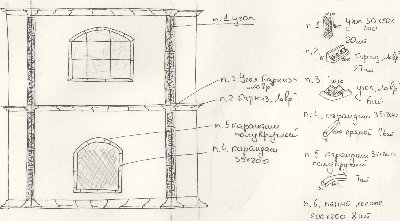 п. 1 угол
п. 3 угол карниз
"лавр"
п. 2 карниз "лавр"
п. 5 карандаш
полукруглый
п. 4 карандаш
35x200
п. 1
угол 50x50x
200
20 шт
п. 2
карниз "лавр"
27 шт
п. 3
угол "лавр"
6 шт
п. 4. карандаш 35x200
прямой 7 шт
п. 5 карандаш 35x200
полукруглый
7 шт
п. 6.
200x200 8 шт